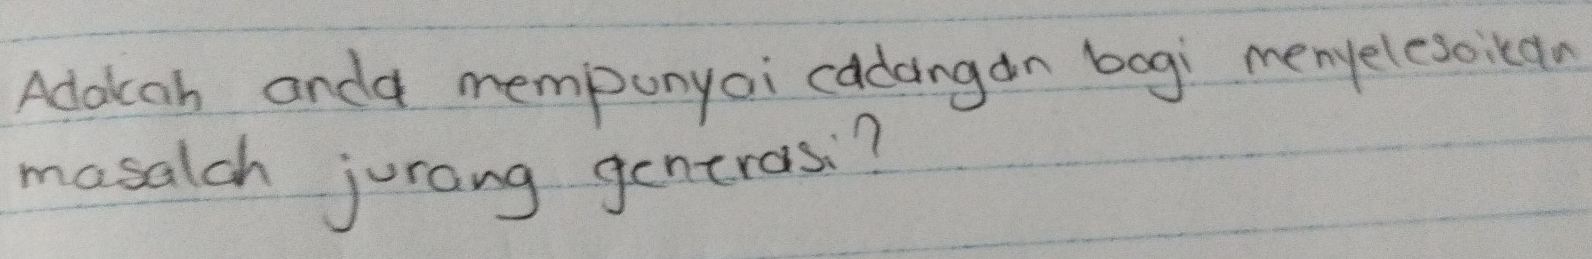 Adakah anda mempunyai cadangan bagi menyelesaikan
masalah jurang generasi?